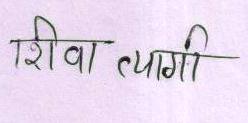 शिवा त्यागी